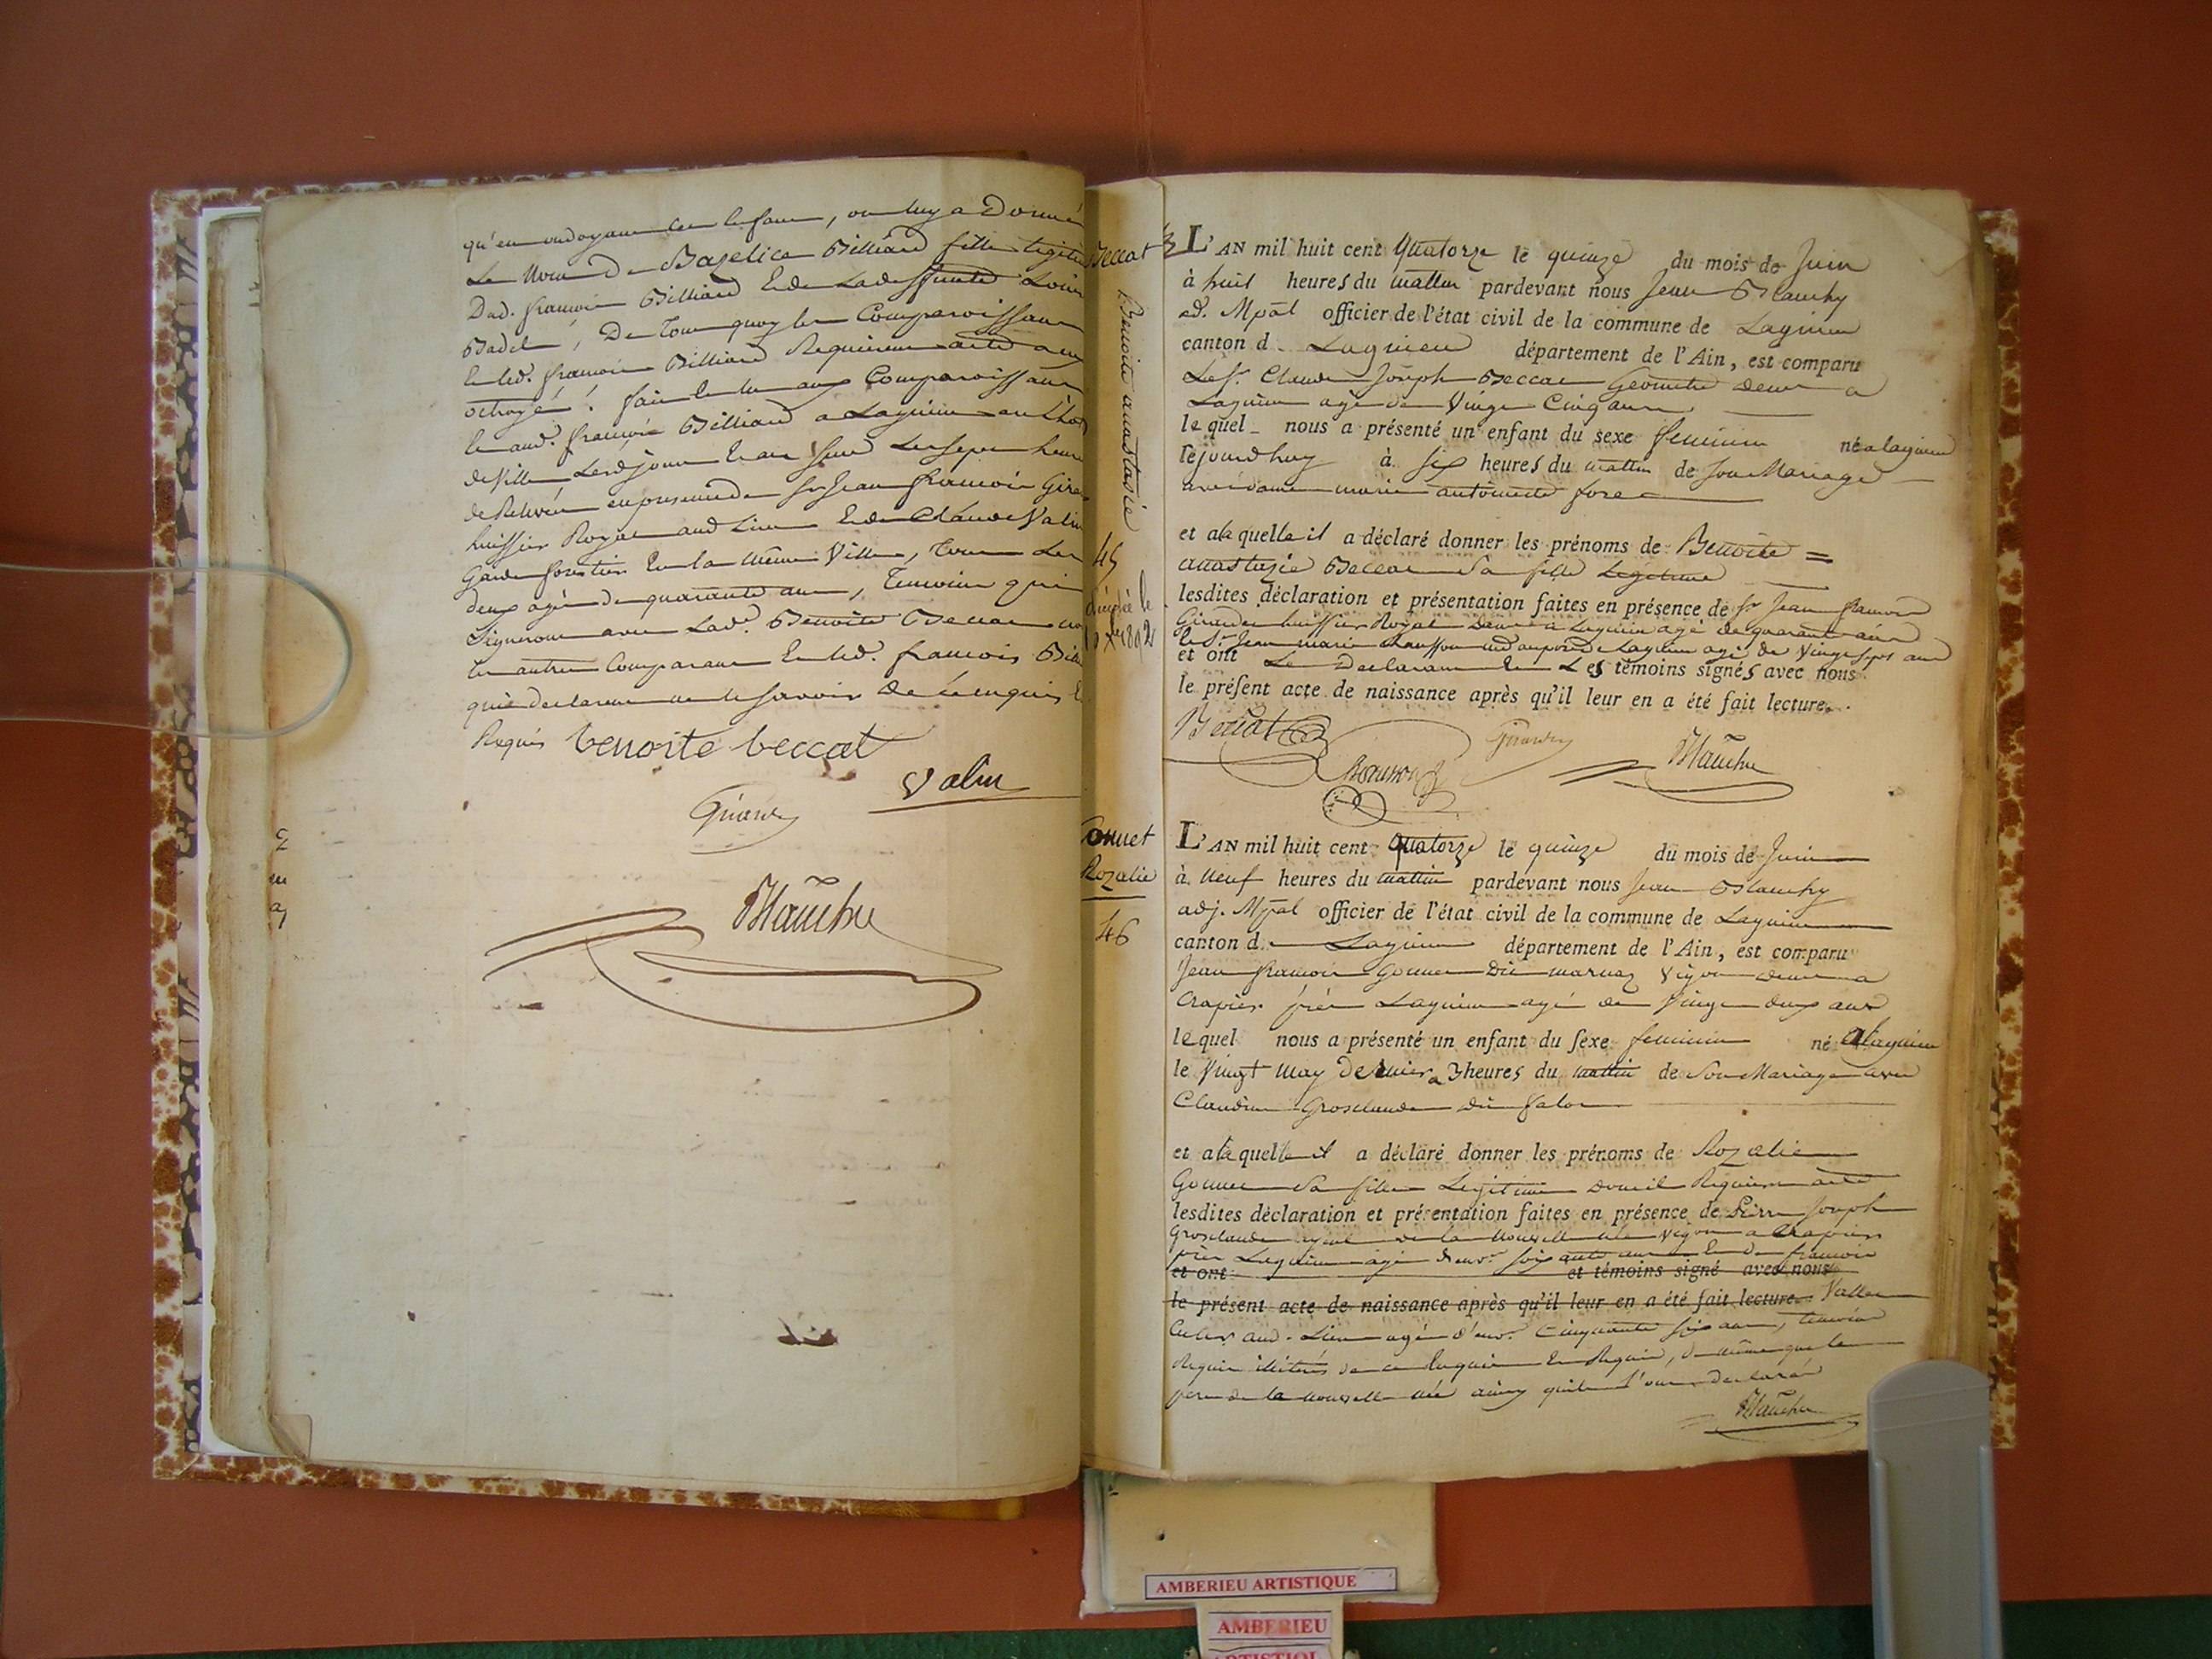 qu'en ondoyant l'enfant, on luy a Donné
Le Nom De Bazelice Billiard fille légitime
Dud. francois Billiard Et de Lade deffunte Louise
Badel, De Tout quoy les Comparoissant
Et led. francois Billiard Requierent acte a eux
octroyé. fait Et lu aux Comparoissant
Et aud. francois Billiard a Lagnieu en L'hotel
de Ville Lesd jour Et an sur Les sept heure
de Relevée en presence de Sr Jean francois Girardy
huissier Royal aud Lieu Et de Claude Valin
Garde forestier En la Même Ville, Tous Les
deux agés de quarante ans, Temoins qui
Signeront avec Lad. Benoite Beccat non
les autres Comparant Et led. francois Billiard
qui declarent ne le savoir De ce enquis Et
Requis benoite beccat
Valin
Girardy
Blanchy
Beccat
Benoite anastasie
45
L'AN mil huit cent Quatorze le quinze du mois de Juin
à huit heures du mattin pardevant nous Jean Blanchy
ad. Mpal officier de l'état civil de la commune de Lagnieu
canton d Lagnieu département de l'Ain, est comparu
Le Sr. Claude Joseph Beccat Géometre demt a
Lagnieu agé de Vingt Cinq ans
lequel nous a présenté un enfant du sexe feminin né a lagnieu
cejourdhuy à six heures du mattin de son Mariage
avec dame marie antoinette
et a laquelle il a déclaré donner les prénoms de Benoite =
anastazie Beccat Sa fille Légitime
lesdites déclaration et présentation faites en présence de Sr Jean francois
Girardy huissier Royal demt a Lagnieu agé de quarante ans
Et Sr. Jean marie de Lagnieu agé de Vingt sept ans
et ont Le Declarant Et Les témoins signés avec nous
le présent acte de naissance après qu'il leur en a été fait lecture.
Beccat
Girardy
Blanchy
Gonnet
Rozalie
46
L'AN mil huit cent Quatorze le quinze du mois de Juin
à Neuf heures du mattin pardevant nous Jean Blanchy
adj. Mpal officier de l'état civil de la commune de Lagnieu
canton d Lagnieu département de l'Ain, est comparu
Jean francois Gonnet Dit marnaz Vigon demt a
Crapier près Lagnieu agé de Vingt deux ans
lequel nous a présenté un enfant du sexe feminin né a lagnieu
le Vingt may dernier a 3 heures du mattin de Son Mariage avec
Claudine Grosclaude dit
et a laquelle il a déclaré donner les prénoms de Rozalie
Gonnet Sa fille Legitime dont il Requiere acte
lesdites déclaration et présentation faites en présence de Pierre Joseph
Grosclaude ayeul de la Nouvelle née Vigon a Crapier
près Lagnieu agé d'env. soixante ans Et de francois
et ont et témoins signé avec nous
le présent acte de naissance après qu'il leur en a été fait lecture. Vallet
aud. Lieu agé d'env. Cinquante six ans, temoins
Requis illitérés de ce Enquis Et Requis, de même que le
pere de la nouvelle née ainsy qu'ils l'ont declaré
Blanchy
AMBERIEU ARTISTIQUE
AMBERIEU
ARTISTIQUE